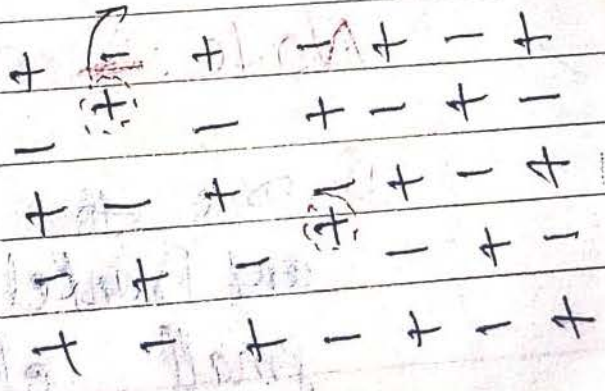 + - + - + - +
- + - + - + -
+ - + - + - +
- + - + - + -
+ - + - + - +